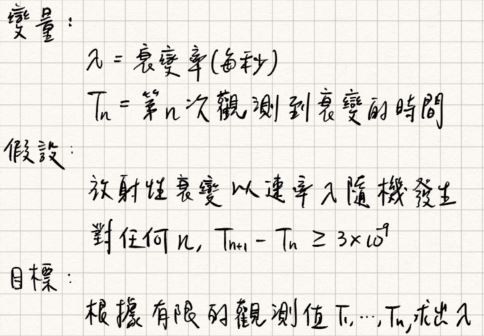 變量:
λ = 衰變率(每秒)
Tn = 第n次觀測到衰變的時間
假設:
放射性衰變以速率λ隨機發生
對任何n, Tn+1 - Tn ≥ 3×10⁻⁹
目標:
根據有限的觀測值 T1, ..., Tn, 求出λ